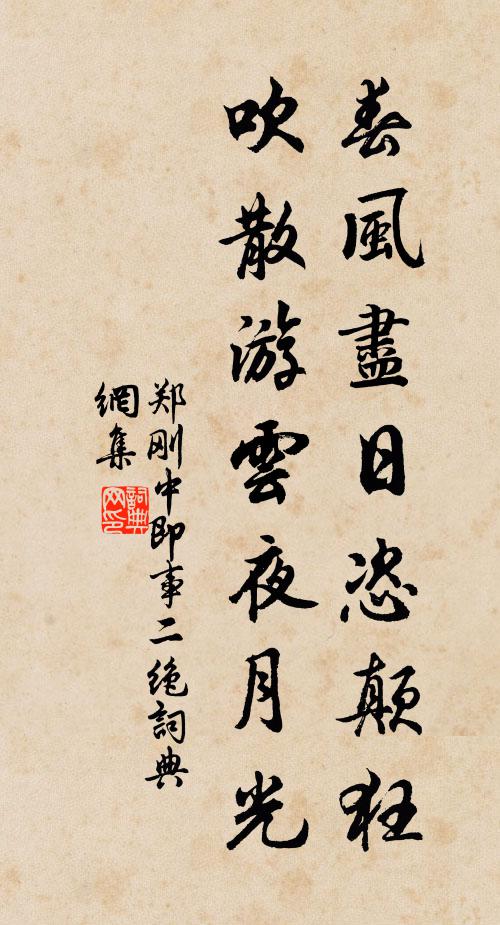 春風盡日恣顛狂
吹散游雲夜月光
郑刚中即事二絶詞典
網集
詞典
网印